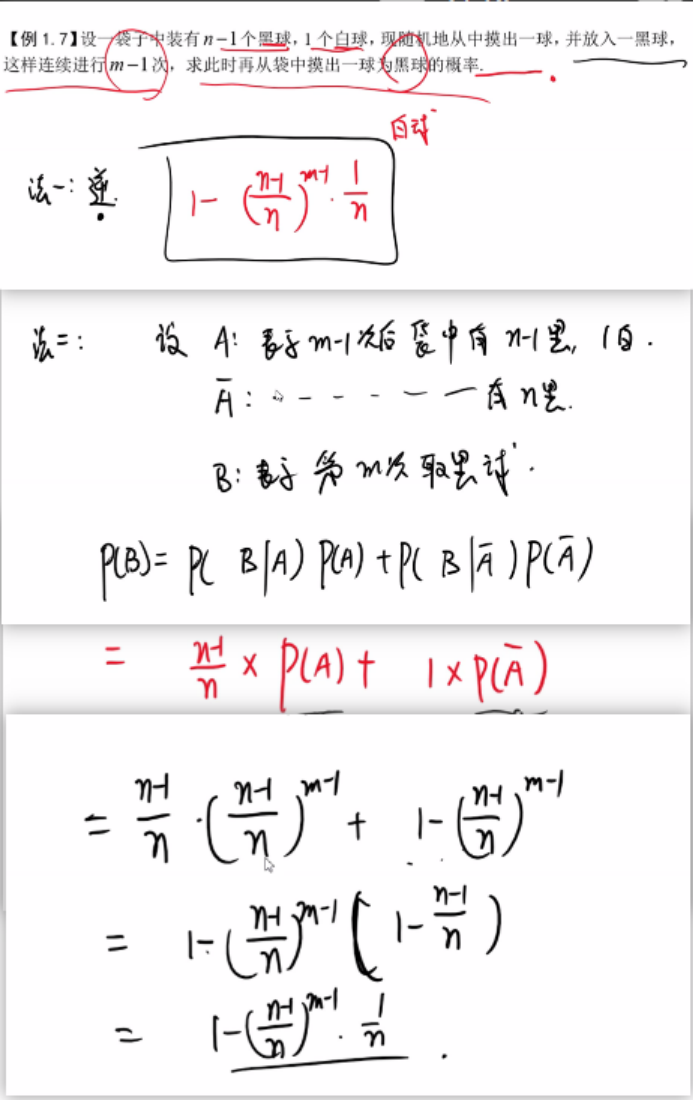 【例1.7】设一袋子中装有n-1个黑球，1个白球，现随机地从中摸出一球，并放入一黑球，
这样连续进行m-1次，求此时再从袋中摸出一球为黑球的概率.
白球
法一：逆. 1-(n-1/n)^{m-1}·1/n
法二： 设 A：表示m-1次后袋中有n-1黑，1白.
Ā：〃 - - - - - 有n黑.
B：表示第m次取黑球.
P(B)=P(B|A)P(A)+P(B|Ā)P(Ā)
= n-1/n × P(A)+ 1×P(Ā)
= n-1/n·(n-1/n)^{m-1} + 1-(n-1/n)^{m-1}
= 1-(n-1/n)^{m-1}(1-n-1/n)
= 1-(n-1/n)^{m-1}·1/n.